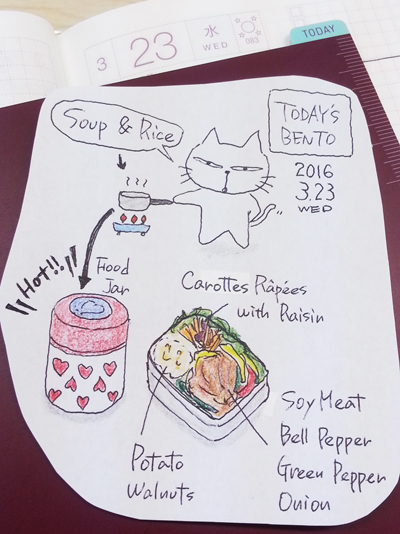 TODAY
3
23
水
WED
083
Soup & Rice
TODAY'S
BENTO
2016
3.23
WED
Hot!!
Food
Jar
Carottes Râpées
with Raisin
Soy Meat
Bell Pepper
Green Pepper
Onion
Potato
Walnuts